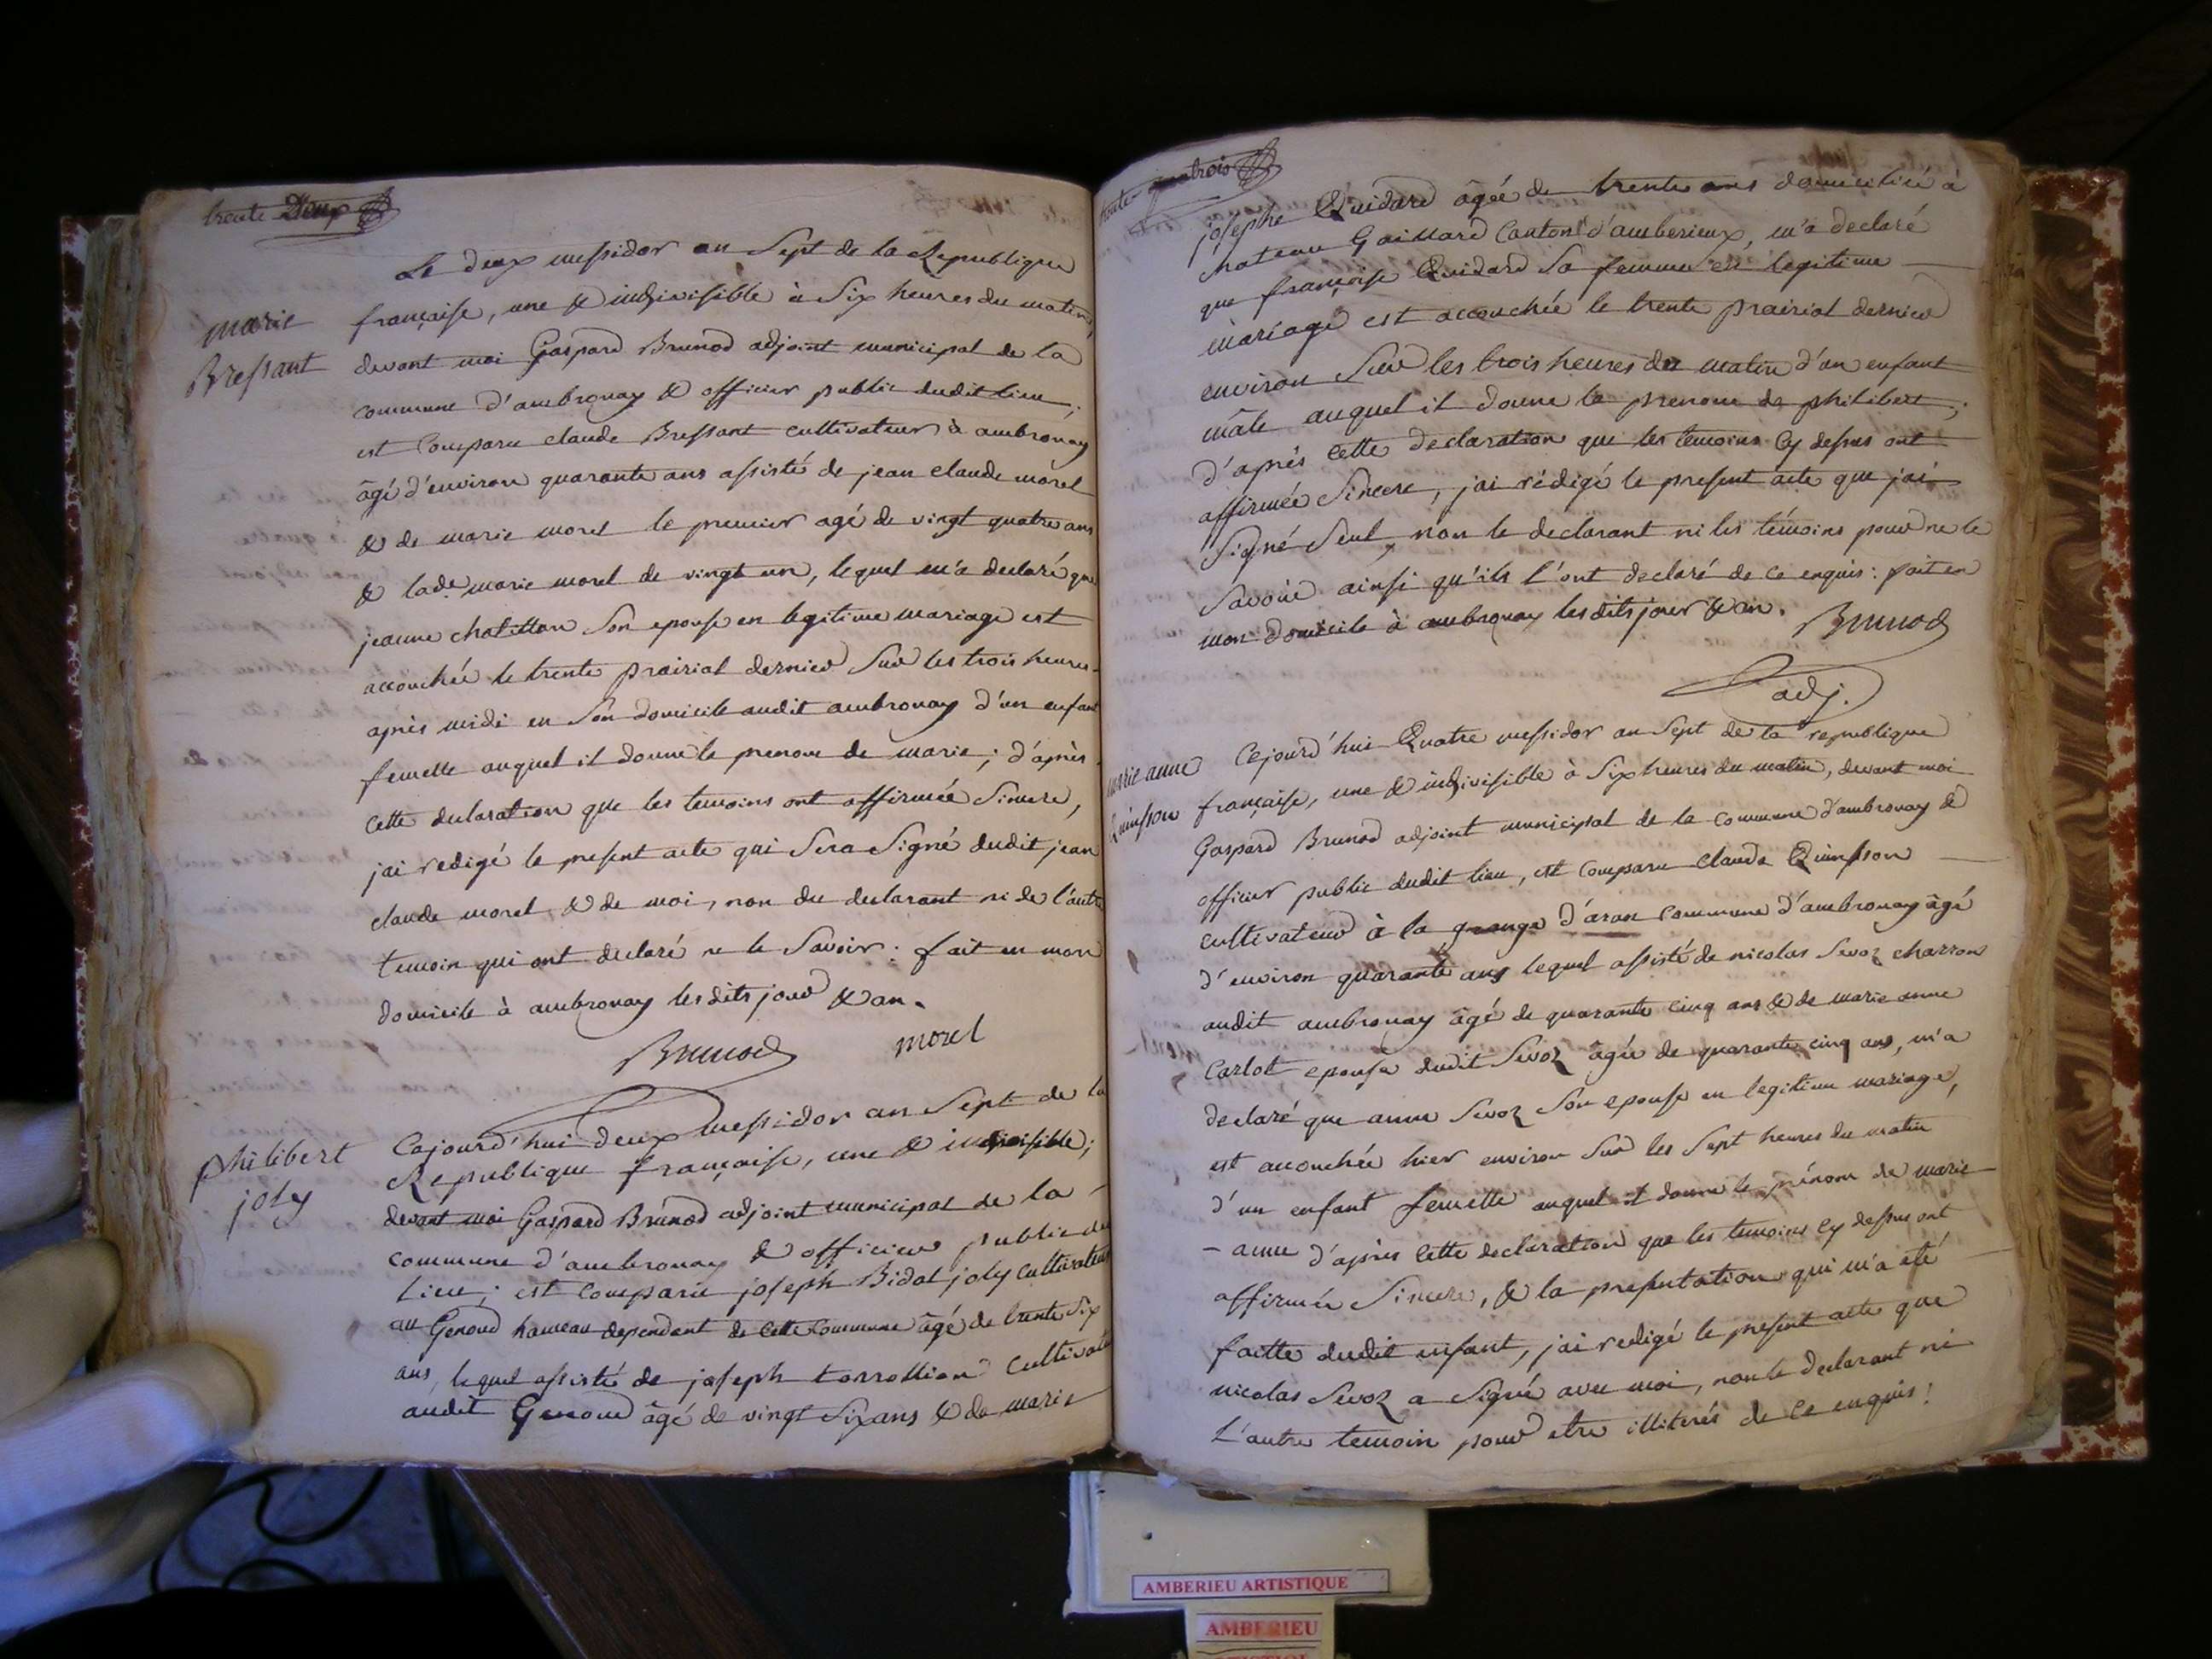 trente Deux
Le deux messidor an Sept de la Republique
marie
Bressant
française, une & indivisible à Six heures du matin,
devant moi Gaspard Brunod adjoint municipal de la
commune d'ambronay & officier public dudit lieu;
est Comparu claude Bressant cultivateur à ambronay
âgé d'environ quarante ans assisté de jean claude morel
& de marie morel le premier agé de vingt quatre ans
& lade. marie morel de vingt un, lequel m'a declaré que
jeanne chatillon Son epouse en legitime mariage est
accouchée le trente prairial dernier Sur les trois heures
après midi en Son domicile audit ambronay d'un enfant
femelle auquel il donne le prenom de marie; d'après
cette declaration que les temoins ont affirmée Sincere,
jai redigé le present acte qui Sera Signé dudit jean
claude morel & de moi, non du declarant ni de l'autre
temoin qui ont declaré ne le Savoir: fait en mon
domicile à ambronay les dits jour & an.
Brunod morel
philibert
joly
Cejourd'hui deux messidor an Sept de la
Republique française, une & indivisible;
devant moi Gaspard Brunod adjoint municipal de la
commune d'ambronay & officier public du
Lieu; est Comparu joseph Bidal joly cultivateur
au Genoud hameau dependant de cette Commune âgé de trente Six
ans, lequel assisté de joseph cultivateur
audit Genoud âgé de vingt Six ans & de marie
trente trois
josephe Quidard agée de trente ans domiciliée à
chateau Gaillard Canton d'amberieux, m'a declaré
que françoise Quidard Sa femme en legitime
mariage est accouchée le trente prairial dernier
environ Sur les trois heures du matin d'un enfant
mâle auquel il donne le prenom de philibert;
d'après cette declaration que les temoins Cy dessus ont
affirmée Sincere, jai rédigé le present acte que jai
Signé Seul, non le declarant ni les témoins pour ne le
Savoir ainsi qu'ils l'ont declaré de ce enquis: fait en
mon domicile à ambronay les dits jour & an.
Brunod
adj.
marie anne
Quinson
Cejourd'hui Quatre messidor an Sept de la republique
française, une & indivisible à Six heures du matin, devant moi
Gaspard Brunod adjoint municipal de la Commune d'ambronay &
officier public dudit lieu, est Comparu claude Quinson
cultivateur à la grange d'aran Commune d'ambronay âgé
d'environ quarante ans lequel assisté de nicolas Sevoz charron
audit ambronay âgé de quarante cinq ans & de marie anne
Carlot epouse dudit Sevoz âgée de quarante cinq ans, m'a
declaré que anne Sevoz Son epouse en legitime mariage,
est accouchée hier environ Sur les Sept heures du matin
d'un enfant femelle auquel il donne le prénom de marie
- anne d'après Cette declaration que les temoins Cy dessus ont
affirmée Sincere, & la presentation qui m'a eté
faitte dudit enfant, jai redigé le present acte que
nicolas Sevoz a Signé avec moi, non le declarant ni
L'autre temoin pour etre illiterés de Ce enquis!
AMBERIEU ARTISTIQUE
AMBERIEU